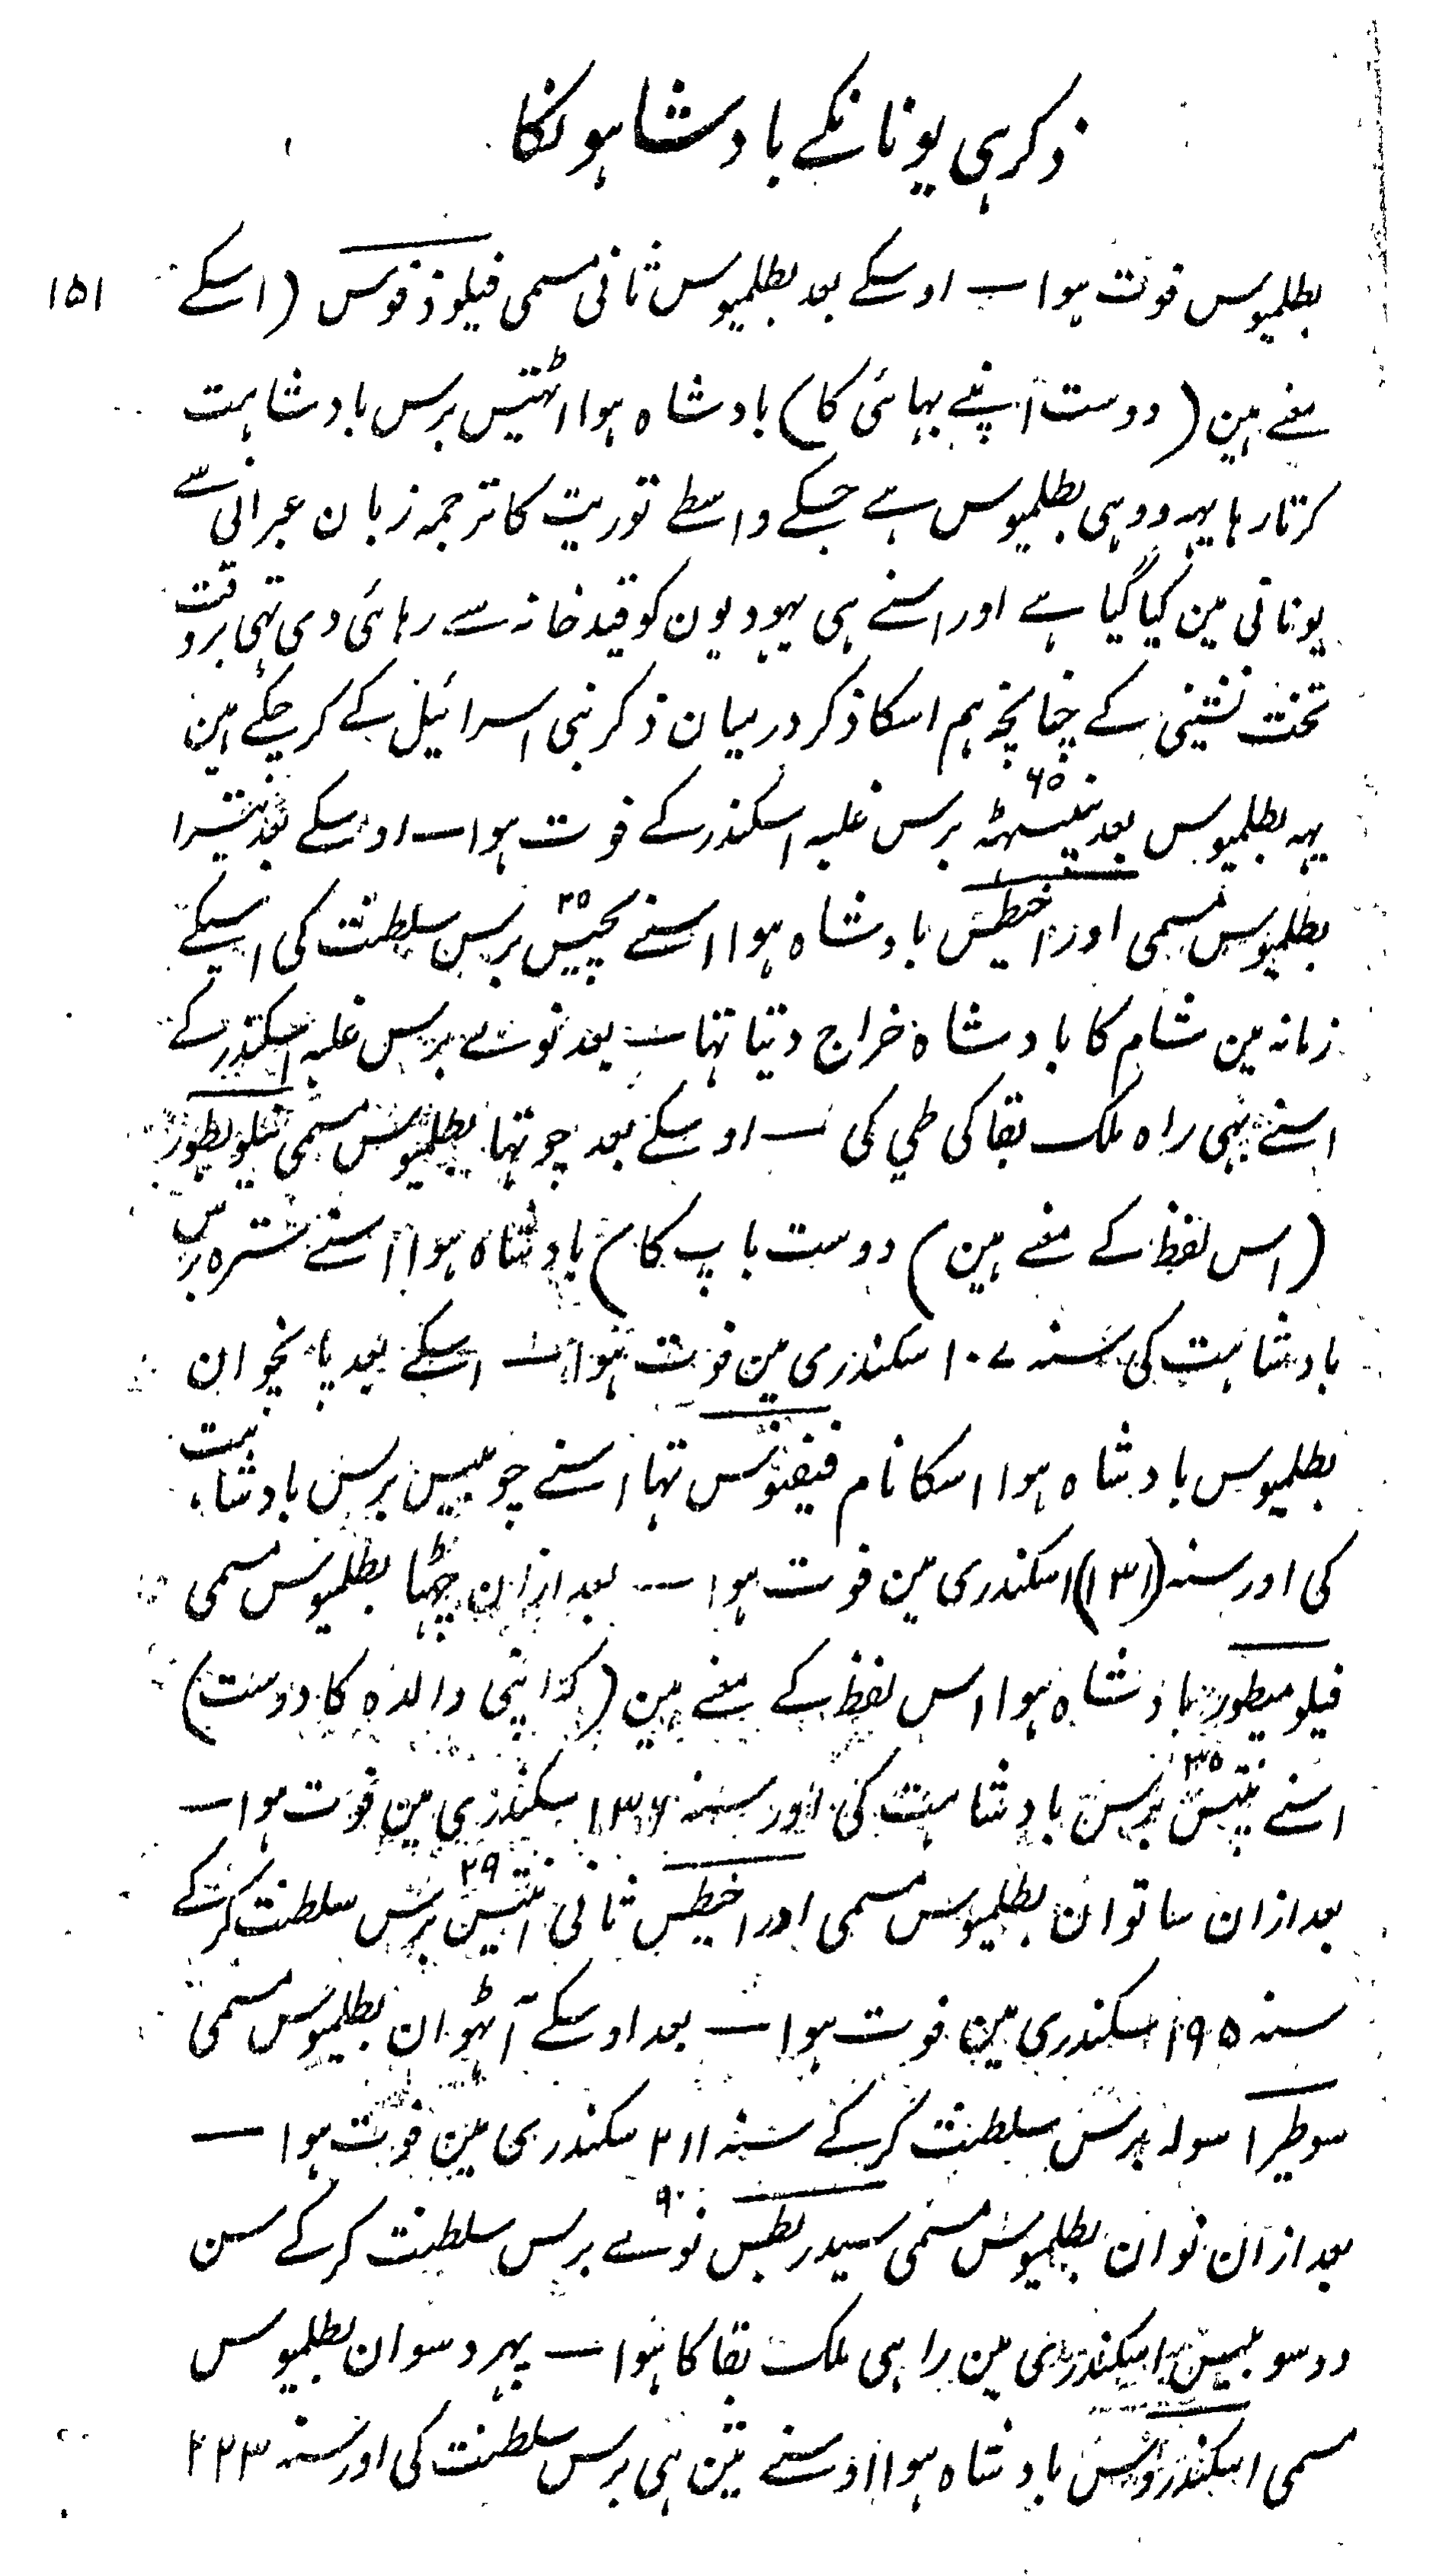 ذکر ہی یونانکے بادشاہونکا
۱۵۱
بطلمیوس فوت ہوا ـــ اوسکے بعد بطلمیوس ثانی مسمی فیلوذفوس (اسکے
معنے ہین (دوست اپنے بہائی کا) بادشاہ ہوا اٹہتیس برس بادشاہت
کرتا رہا یہہ ووہی بطلمیوس ہے جسکے واسطے توریت کا ترجمہ زبان عبرانی سے
یونانی مین کیا گیا ہے اور اسنے ہی یہودیون کو قیدخانہ سے رہائی دی تہی بروقت
تخت نشینی کے چنانچہ ہم اسکا ذکر درمیان ذکر بنی اسرائیل کے کر چکے ہین
یہہ بطلمیوس بعد پنیسٹہہ ۶۵ برس غلبہ اسکندر کے فوت ہوا ـــ اوسکے بعد تیسرا
بطلمیوس مسمی اوراخیطس بادشاہ ہوا اسنے پچیس ۲۵ برس سلطنت کی اسیکے
زمانہ مین شام کا بادشاہ خراج دیتا تہا ـــ بعد نوے برس غلبہ اسکندر کے
اسنے بہی راہ ملک بقا کی طی کی ـــ اوسکے بعد چوتہا بطلمیوس مسمی فیلوبطور
(اس لفظ کے معنے ہین) دوست باپ کا) بادشاہ ہوا اسنے سترہ برس
بادشاہت کی سنہ ۱۰۷ سکندری مین فوت ہوا ـــ اسکے بعد پانچوان
بطلمیوس بادشاہ ہوا اسکا نام فیفنوس تہا اسنے چوبیس برس بادشاہت
کی اور سنہ (۱۳۱) اسکندری مین فوت ہوا ـــ بعد ازان چہٹا بطلمیوس مسمی
فیلومیطور بادشاہ ہوا اس لفظ کے معنے ہین (کہ اپنی والدہ کا دوست)
اسنے پنتیس ۳۵ برس بادشاہت کی اور سنہ ۱۳۶ سکندری مین فوت ہوا ـــ
بعد ازان ساتوان بطلمیوس مسمی اوراخیطس ثانی انتیس ۲۹ برس سلطنت کر کے
سنہ ۱۹۵ سکندری مین فوت ہوا ـــ بعد اوسکے آٹہوان بطلمیوس مسمی
سوطیرا سولہ برس سلطنت کر کے سنہ ۲۱۱ سکندری مین فوت ہوا ـــ
بعد ازان نوان بطلمیوس مسمی سیدربطس نوے ۹۰ برس سلطنت کر کے سن
دوسو بیس اسکندری مین راہی ملک بقا کا ہوا ـــ پہر دسوان بطلمیوس
مسمی اسکندروس بادشاہ ہوا اوسنے تین ہی برس سلطنت کی اور سنہ ۲۲۳